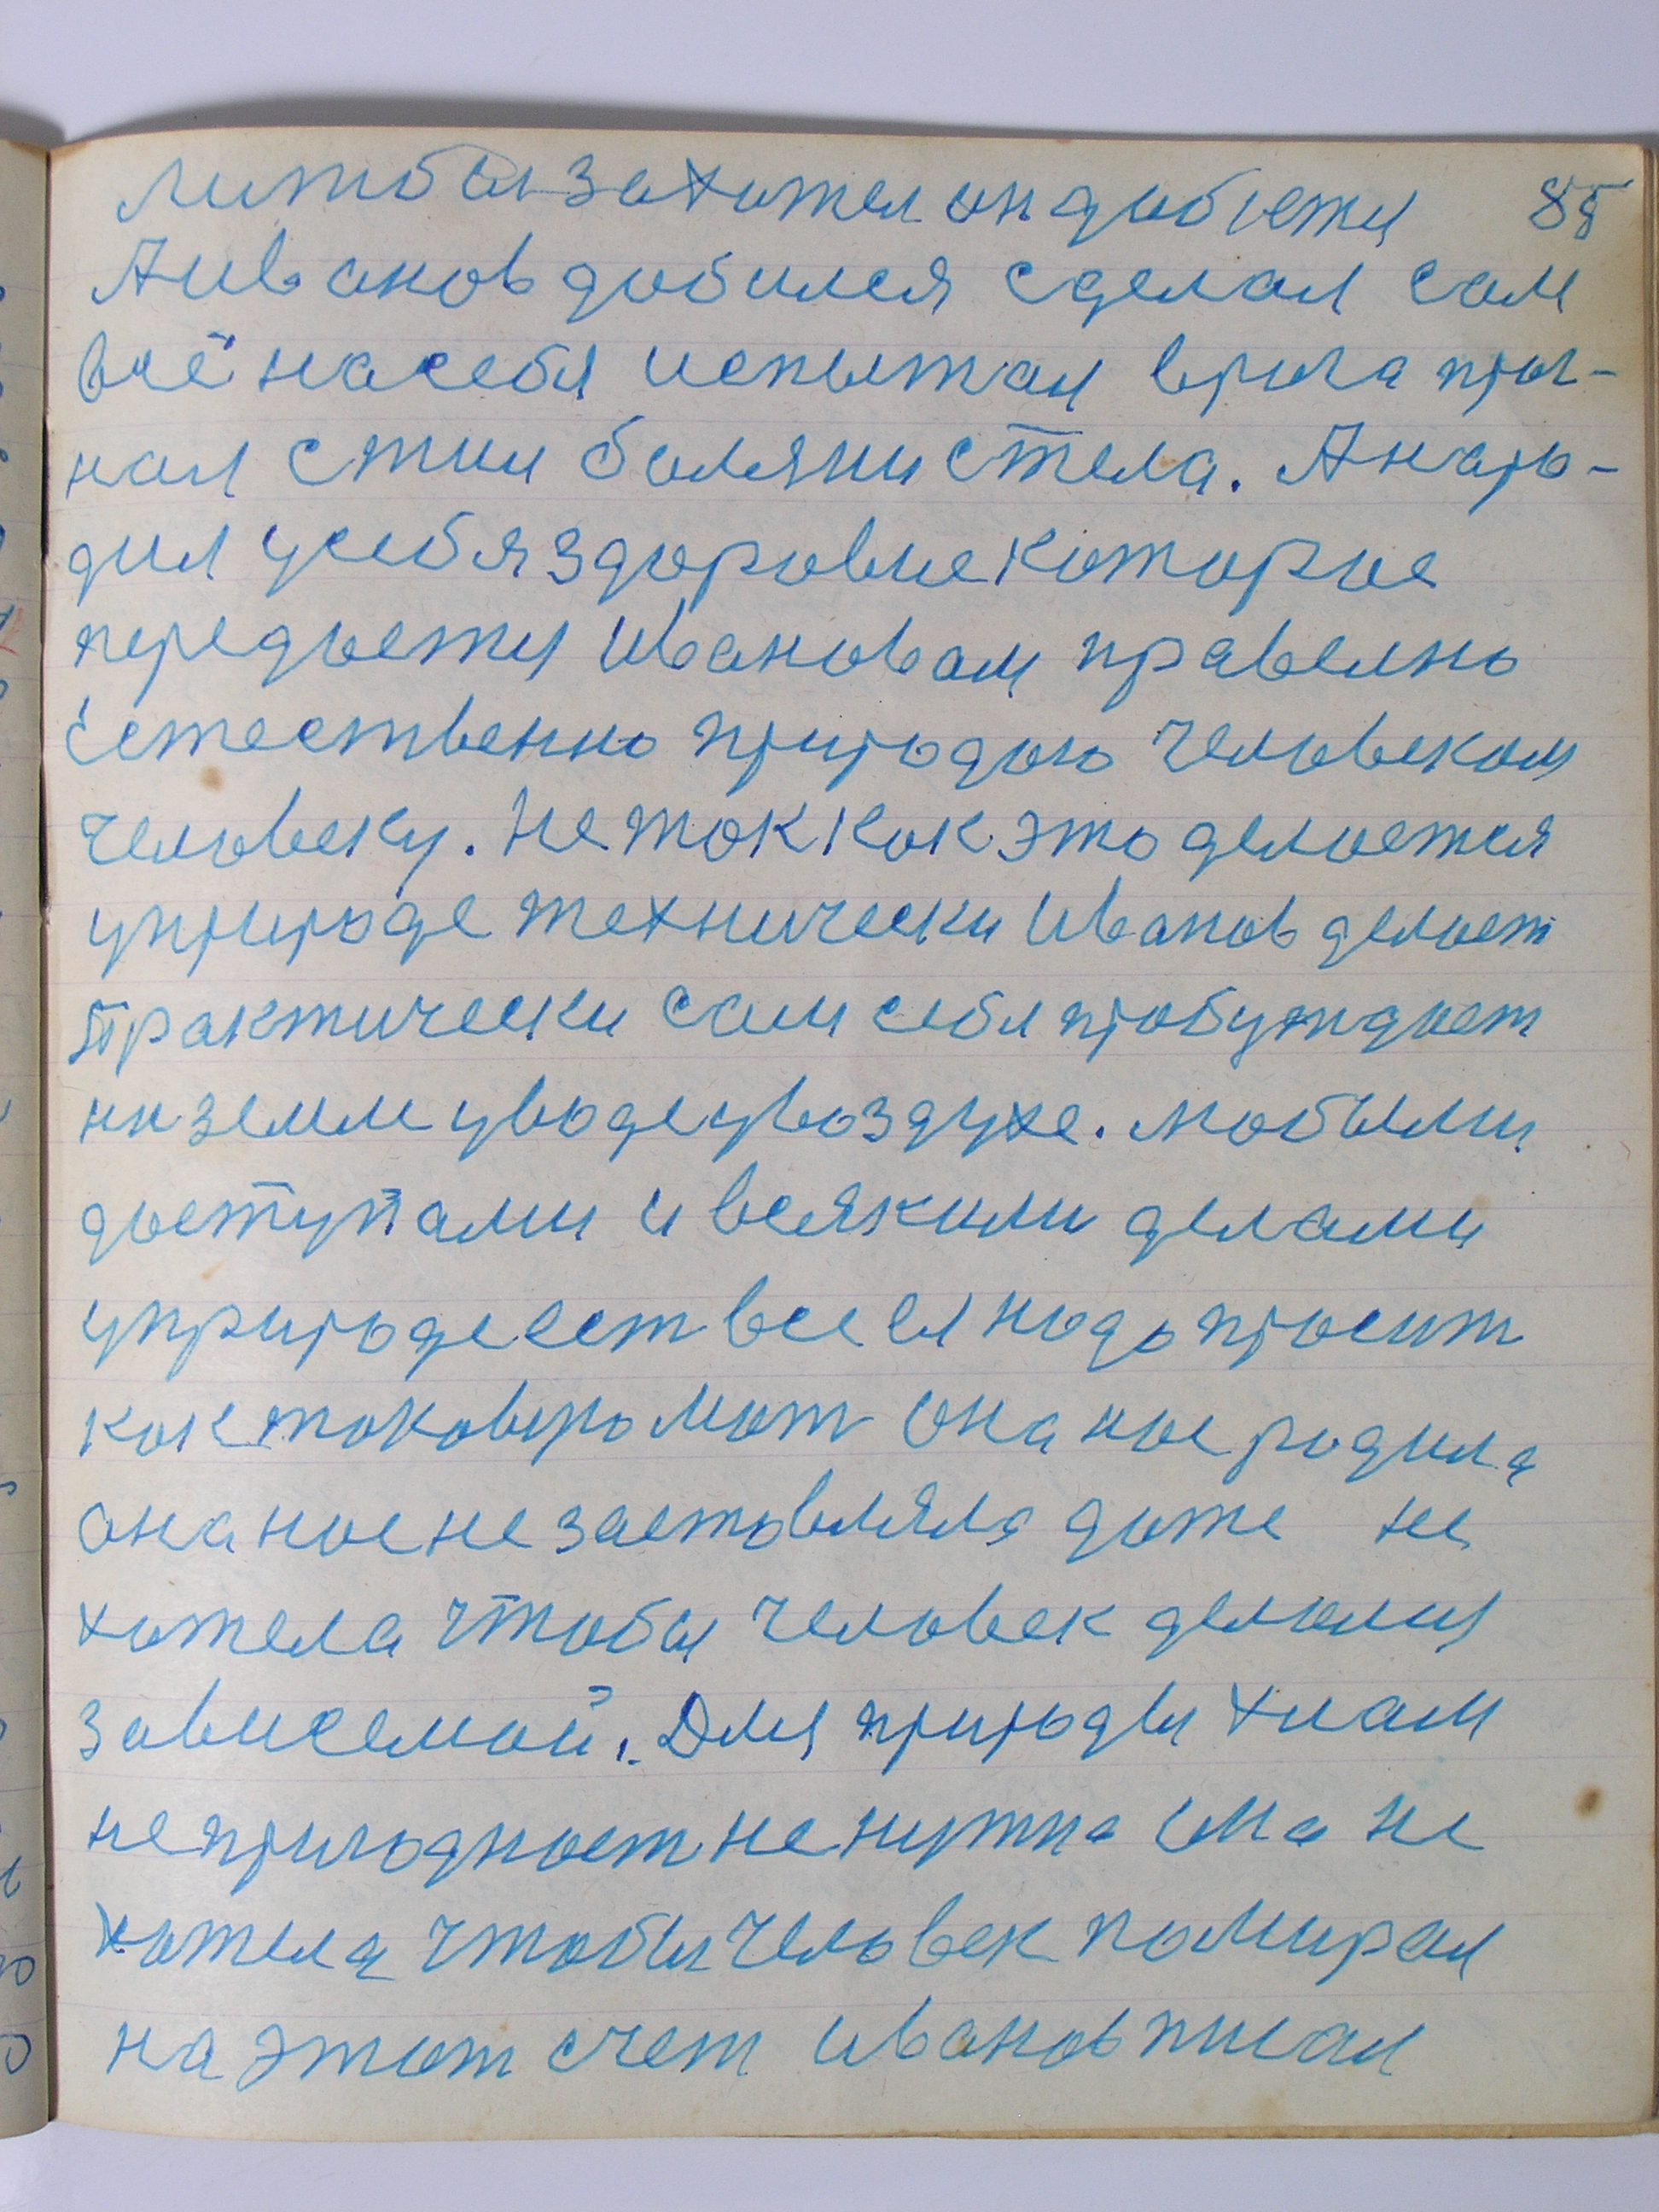 лит бы захотел он добьетця 85
А Иванов добился сделал сам
всё на себя испытал врага прог-
нал с тии болянис тела. А наро-
дил у себя здоровие которое
передъетця Ивановам правелно
естественно природою человеком
человеку. Не ток как это делоетця
у природе технически Иванов делоет
практически сам себя пробуждает
на земле у воде у воздухе. любыми
доступами и всякими делами
у природе ест все ея надо просит
как токовую мат она нас родила
она нас не заставляла даже не
хотела чтобы человек делался
зависемой. Для природы хлам
не пригодност не нужна она не
хотела чтобы человек помирал
на этот счет Иванов писал